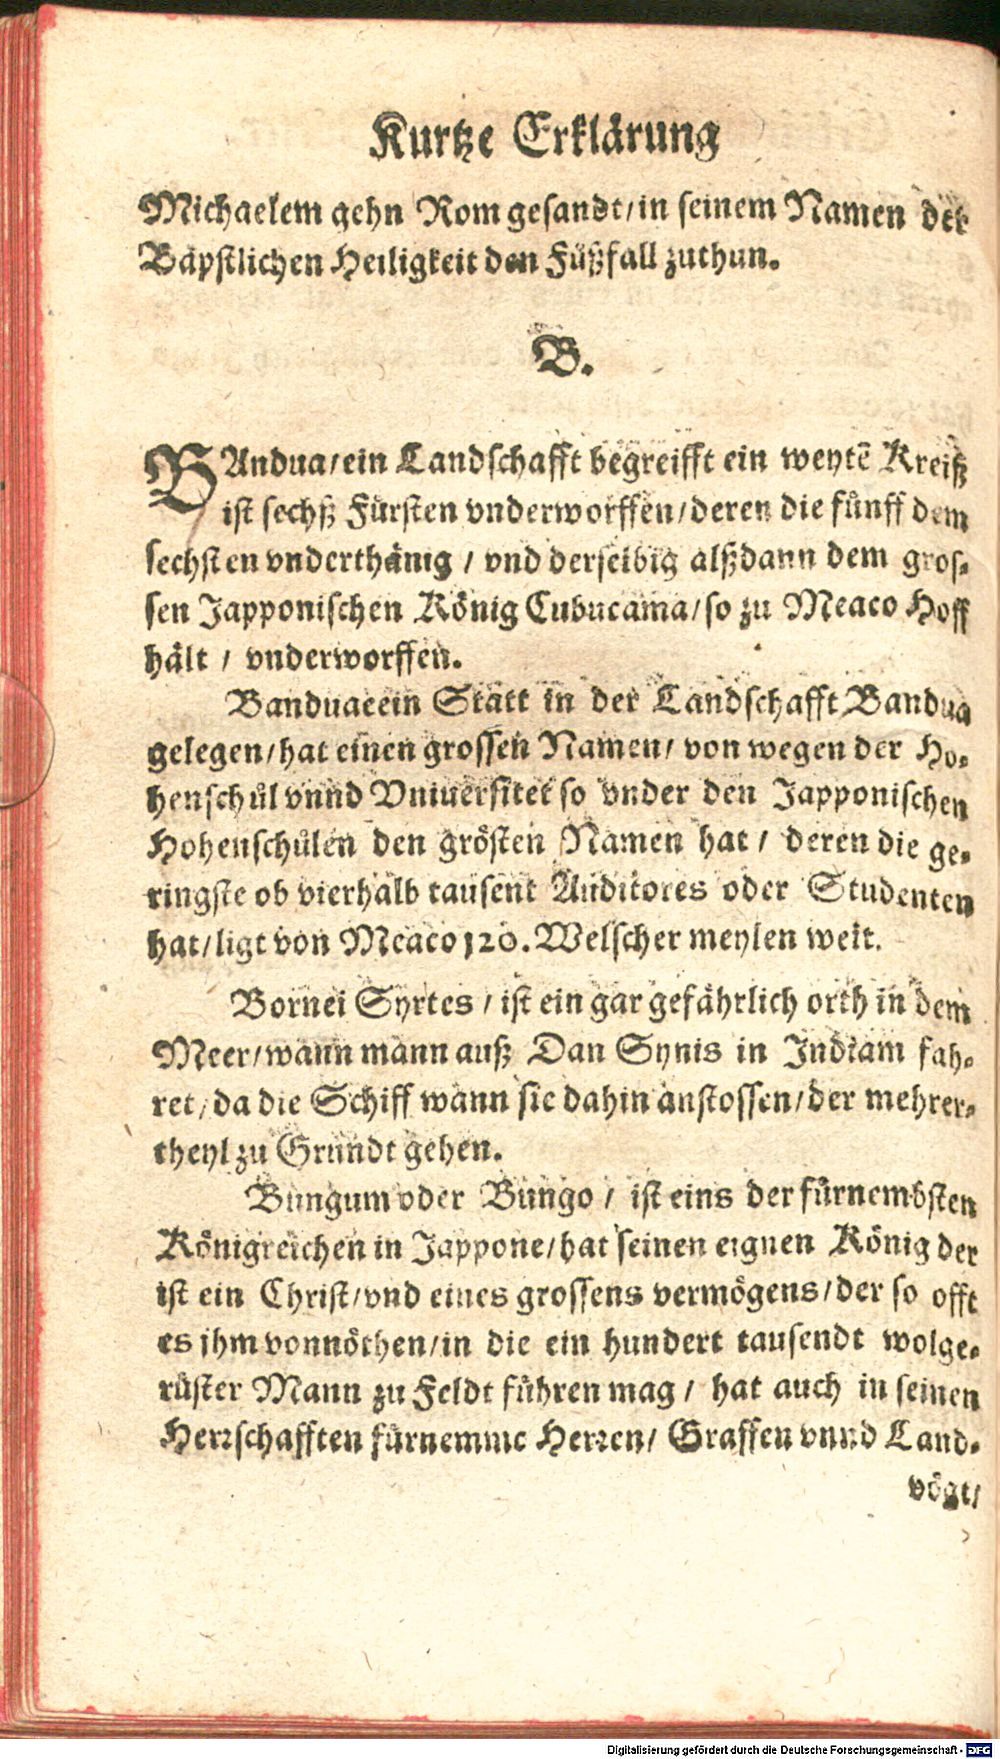 Kurtze Erklärung
Michaelem gehn Rom gesandt/in seinem Namen der
Bäpstlichen Heiligkeit den Fůßfall zuthun.
B.
BAndua/ein Landschafft begreifft ein weytẽ Kreiß
ist sechß Fürsten vnderworffen/deren die fünff dem
sechsten vnderthänig / vnd derselbig alßdann dem gros-
sen Japponischen König Cubucama/so zu Meaco Hoff
hält / vnderworffen.
Banduae ein Statt in der Landschafft Bandua
gelegen/hat einen grossen Namen/ von wegen der Ho-
henschůl vnnd Vniuersitet so vnder den Japponischen
Hohenschůlen den grösten Namen hat / deren die ge-
ringste ob vierhalb tausent Auditores oder Studenten
hat/ligt von Meaco 120. Welscher meylen weit.
Bornei Syrtes / ist ein gar gefährlich orth in dem
Meer/wann mann auß Dan Synis in Indiam fah-
ret/da die Schiff wann sie dahin anstossen/der mehrer-
theyl zu Grundt gehen.
Bungum oder Bungo / ist eins der fürnembsten
Königreichen in Jappone/hat seinen eignen König der
ist ein Christ/vnd eines grossens vermögens/der so offt
es jhm vonnöthen/in die ein hundert tausendt wolge-
rüster Mann zu Feldt führen mag / hat auch in seinen
Herrschafften fürnemme Herren/ Graffen vnnd Land-
vögt/
Digitalisierung gefördert durch die Deutsche Forschungsgemeinschaft - DFG